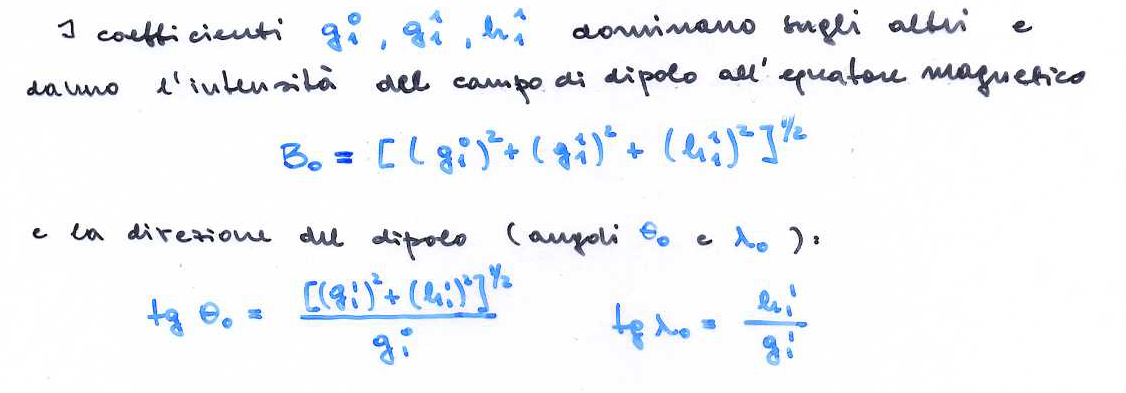 I coefficienti g₁⁰, g₁¹, h₁¹ dominano sugli altri e
danno l'intensità del campo di dipolo all'equatore magnetico
B₀ = [(g₁⁰)² + (g₁¹)² + (h₁¹)²]^1/2
e la direzione del dipolo (angoli θ₀ e λ₀):
tg θ₀ = [(g₁¹)² + (h₁¹)²]^1/2 / g₁⁰ tg λ₀ = h₁¹ / g₁¹